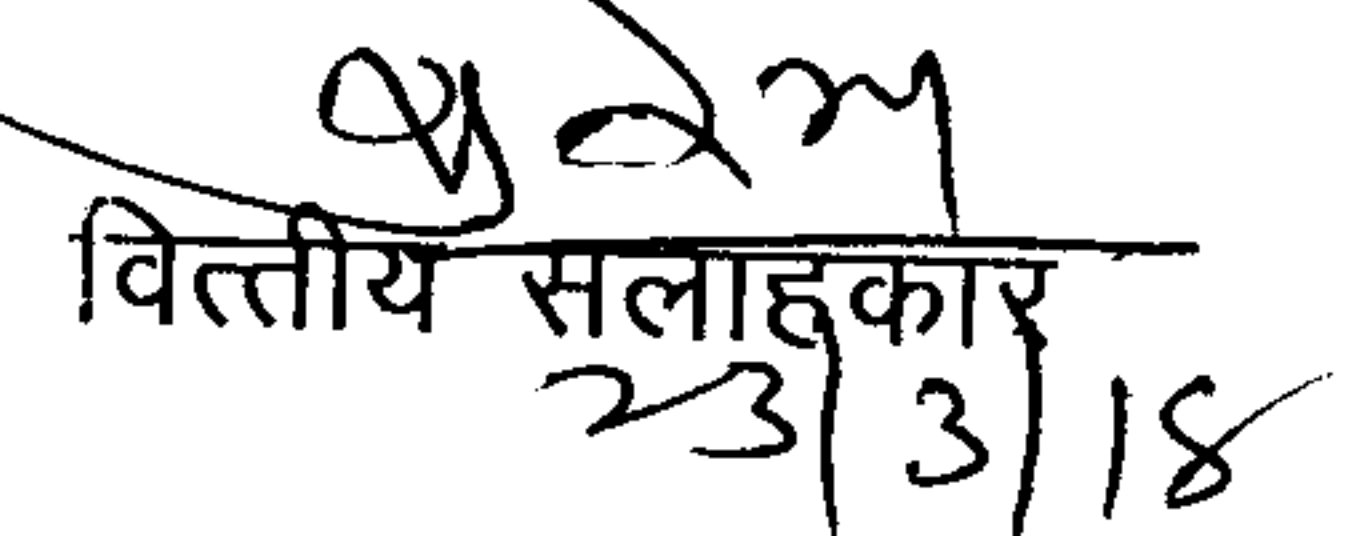 वित्तीय सलाहकार
23/3/18